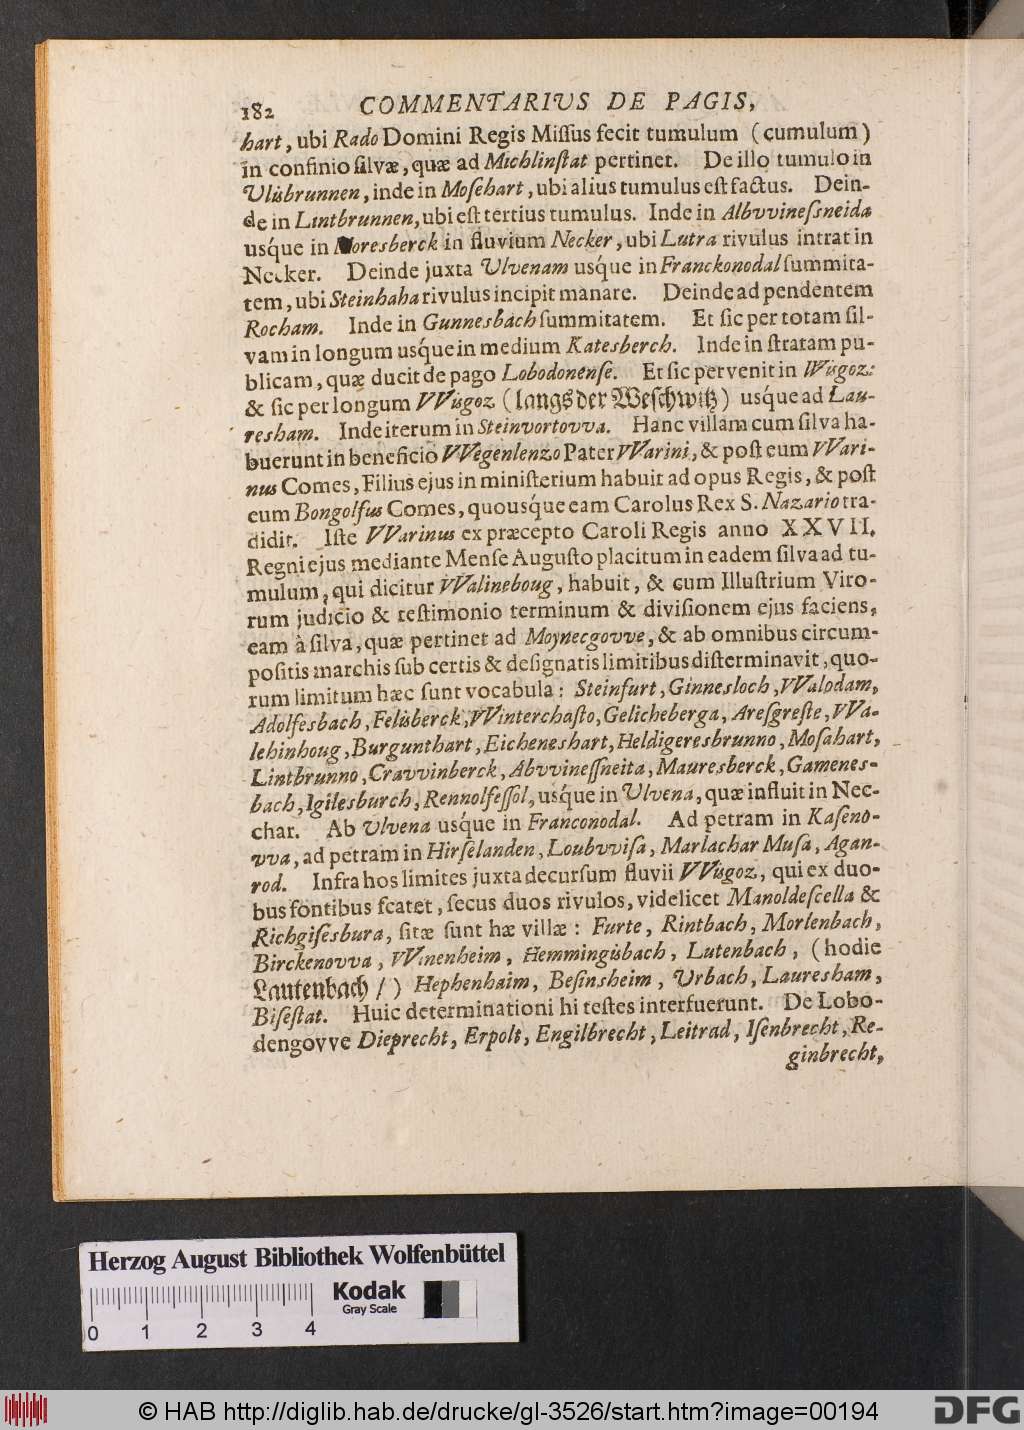 182 COMMENTARIVS DE PAGIS,
hart, ubi Rado Domini Regis Miſſus fecit tumulum (cumulum)
in confinio ſilvæ, quæ ad Michlinſtat pertinet. De illo tumulo in
Ulisbrunnen, inde in Moſehart, ubi alius tumulus eſt factus. Dein-
de in Lintbrunnen, ubi eſt tertius tumulus. Inde in Albvvineſsneida
usq́ue in Moresberck in fluvium Necker, ubi Lutra rivulus intrat in
Necker. Deinde juxta Ulvenam usq́ue in Franckonodal ſummita-
tem, ubi Steinhaha rivulus incipit manare. Deinde ad pendentem
Rocham. Inde in Gunnesbach ſummitatem. Et ſic per totam ſil-
vam in longum usq́ue in medium Katesberch. Inde in ſtratam pu-
blicam, quæ ducit de pago Lobodonenſe. Et ſic pervenit in Wisgoz:
& ſic per longum VVisgoz (langs der Weſchwitz) usq́ue ad Lau-
resham. Inde iterum in Steinvortovva. Hanc villam cum ſilva ha-
buerunt in beneficio VVegenlenzo Pater VVarini, & poſt eum VVari-
nus Comes, Filius ejus in miniſterium habuit ad opus Regis, & poſt
eum Bongolfus Comes, quousq́ue eam Carolus Rex S. Nazario tra-
didit. Iſte VVarinus ex præcepto Caroli Regis anno XXVII.
Regni ejus mediante Menſe Auguſto placitum in eadem ſilva ad tu-
mulum, qui dicitur VValineboug, habuit, & cum Illuſtrium Viro-
rum judicio & teſtimonio terminum & diviſionem ejus faciens,
eam à ſilva, quæ pertinet ad Moynecgovve, & ab omnibus circum-
poſitis marchis ſub certis & deſignatis limitibus diſterminavit, quo-
rum limitum hæc ſunt vocabula: Steinfurt, Ginnesloch, VValodam,
Adolfesbach, Felisberck, VVinterchaſto, Gelicheberga, Areſgreſte, VVa-
lehinhoug, Burgunthart, Eicheneshart, Heldigeresbrunno, Moſahart,
Lintbrunno, Cravvinberck, Abvvineſſneita, Mauresberck, Gamenes-
bach, Igilesburch, Rennolfeſſol, usq́ue in Ulvena, quæ influit in Nec-
char. Ab Ulvena usq́ue in Franconodal. Ad petram in Kaſeno-
vva, ad petram in Hirſelanden, Loubvviſa, Marlachar Muſa, Agan-
rod. Infra hos limites juxta decurſum fluvii VVisgoz, qui ex duo-
bus fontibus ſcatet, ſecus duos rivulos, videlicet Manoldeſcella &
Richgiſesbura, ſitæ ſunt hæ villæ: Furte, Rintbach, Morlenbach,
Birckenovva, VVinenheim, Hemmingisbach, Lutenbach, (hodie
Lautenbach /) Hephenhaim, Beſinsheim, Urbach, Lauresham,
Biſeſtat. Huic determinationi hi teſtes interfuerunt. De Lobo-
dengovve Dieprecht, Erpolt, Engilbrecht, Leitrad, Iſenbrecht, Re-
ginbrecht,
Herzog August Bibliothek Wolfenbüttel
Kodak
Gray Scale
0 1 2 3 4
© HAB http://diglib.hab.de/drucke/gl-3526/start.htm?image=00194
DFG